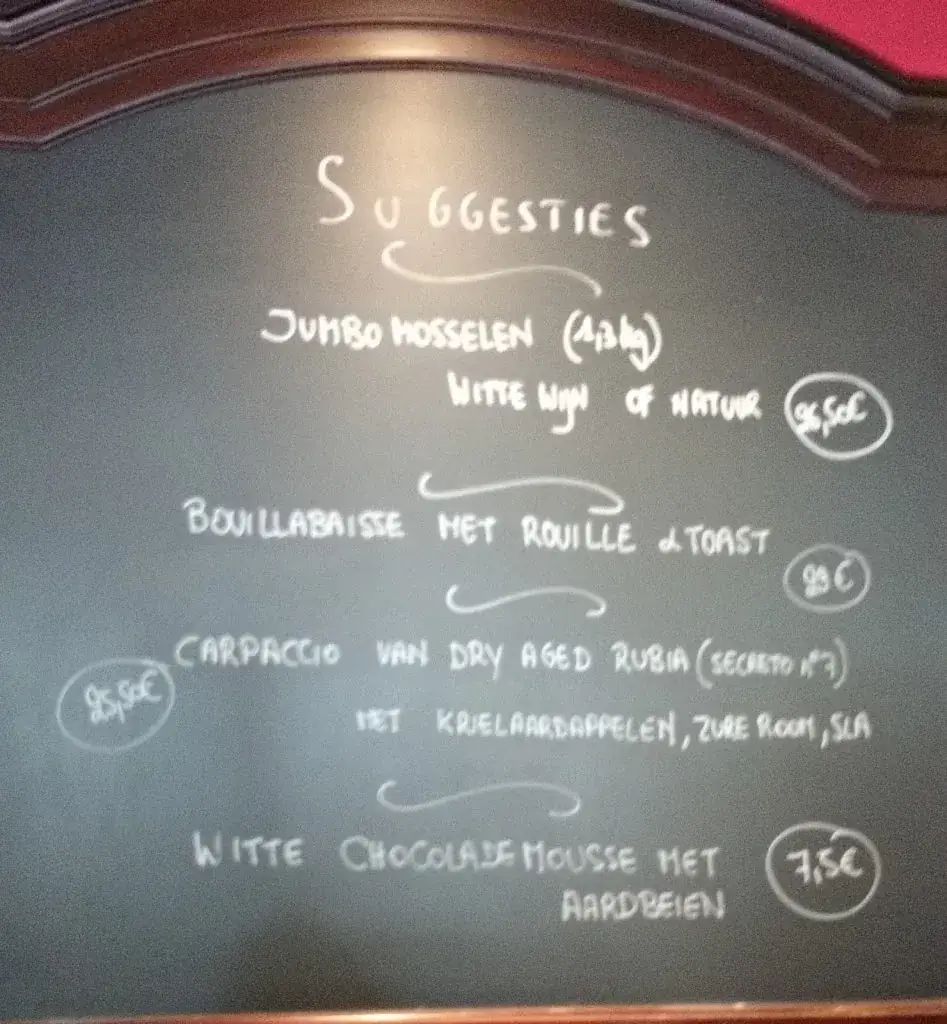 SUGGESTIES
JUMBO MOSSELEN (1,3kg)
WITTE WIJN OF NATUUR 26,50€
BOUILLABAISSE MET ROUILLE & TOAST
29€
CARPACCIO VAN DRY AGED RUBIA (SECRETO N°7)
25,50€
MET KRIELAARDAPPELEN, ZURE ROOM, SLA
WITTE CHOCOLADEMOUSSE MET 7,5€
AARDBEIEN